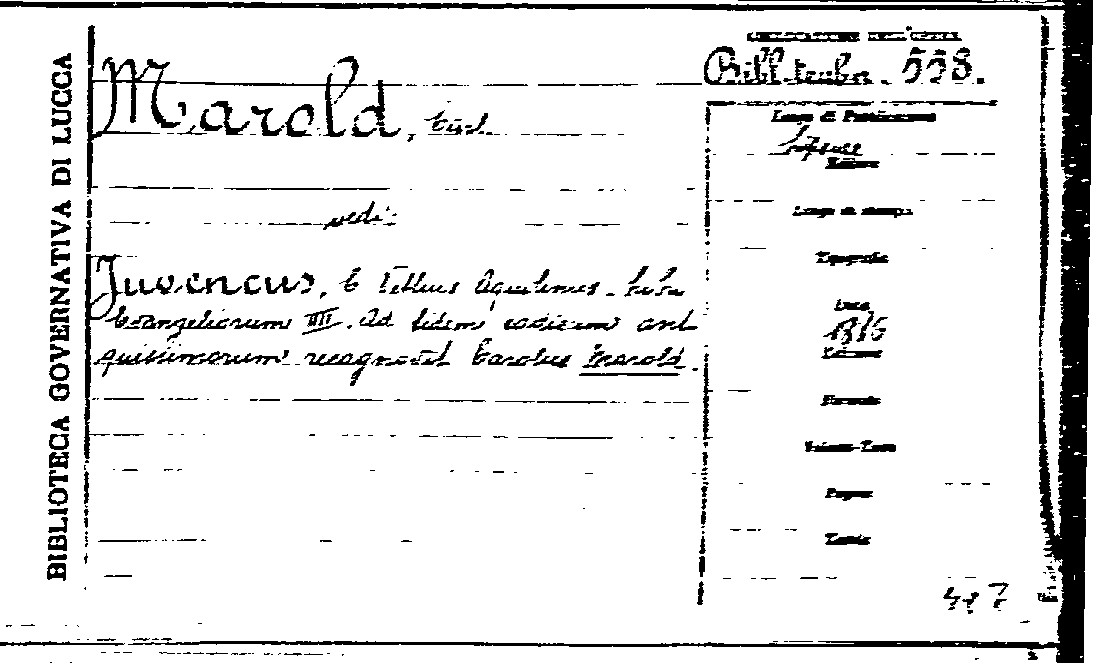 BIBLIOTECA GOVERNATIVA DI LUCCA
Bibl. teubn. 558.
Marold, Carl
vedi:
Juvencus, C Vettius Aquilinus. Libri
Evangeliorum IIII. Ad fidem codicum anti
quissimorum recognovit Carolus Marold.
Luogo di Pubblicazione
Lipsiae
Editore
Luogo di stampa
Tipografia
Data
1886
Edizione
Formato
Volumi-Tomi
Pagine
Tavole